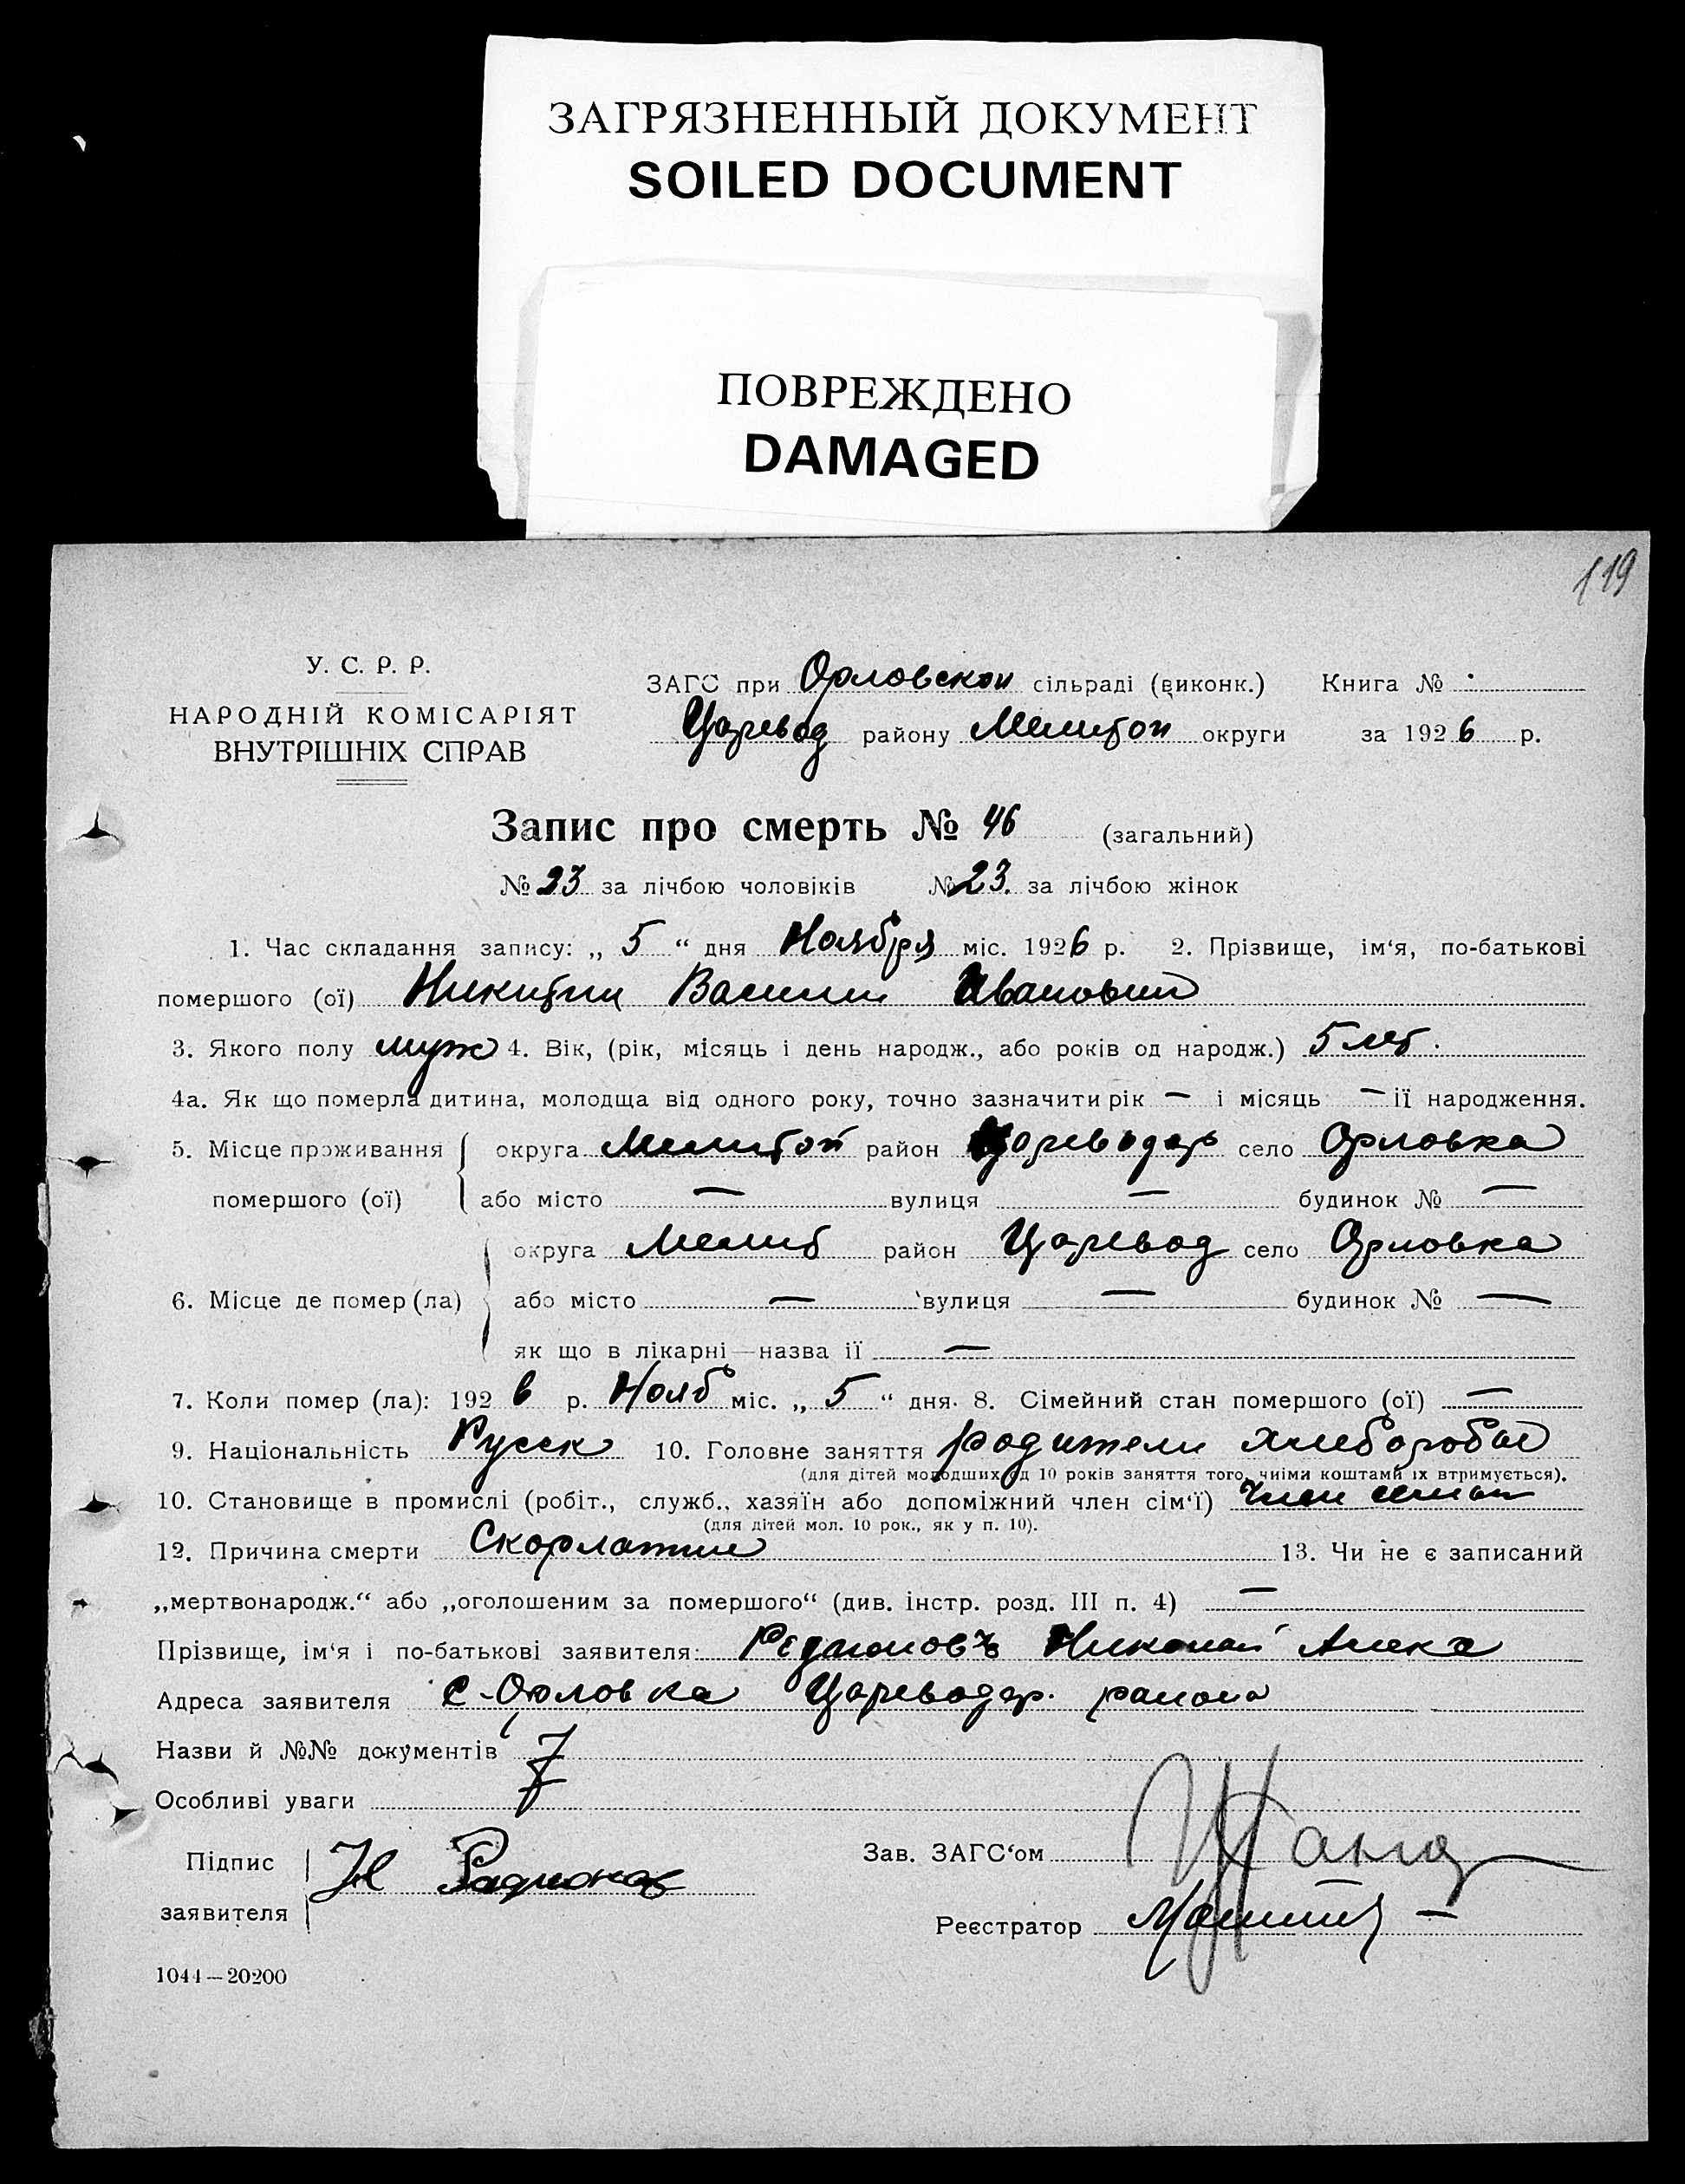 ЗАГРЯЗНЕННЫЙ ДОКУМЕНТ
SOILED DOCUMENT
ПОВРЕЖДЕНО
DAMAGED
119
У. С. Р. Р.
НАРОДНІЙ КОМІСАРІЯТ
ВНУТРІШНІХ СПРАВ
ЗАГС при Орловской сільраді (виконк.) Книга №
Царевод району Мелитоп округи за 1926 р.
Запис про смерть № 46 (загальний)
№ 23 за лічбою чоловіків № 23. за лічбою жінок
1. Час складання запису: „ 5 “ дня Ноября міс. 1926 р. 2. Прізвище, ім‘я, по-батькові
помершого (ої) Никитин Василий Иванович
3. Якого полу муж 4. Вік, (рік, місяць і день народж., або років од народж.) 5 лет.
4а. Як що померла дитина, молодща від одного року, точно зазначити рік — і місяць — її народження.
5. Місце проживання округа Мелитоп район Цареводар село Орловка
помершого (ої) або місто — вулиця — будинок № —
округа Мелит район Царевод село Орловка
6. Місце де помер (ла) або місто — вулиця — будинок № —
як що в лікарні—назва її —
7. Коли помер (ла): 1926 р. Нояб міс. „ 5 “ дня. 8. Сімейний стан помершого (ої) —
9. Національність Русск 10. Головне заняття родители хлеборобы
(для дітей молодших од 10 років заняття того, чиїми коштами їх втримується).
10. Становище в промислі (робіт., служб., хазяїн або допоміжний член сім‘ї) Член семьи
(для дітей мол. 10 рок., як у п. 10).
12. Причина смерти Скорлатине 13. Чи не є записаний
„мертвонародж.“ або „оголошеним за помершого“ (див. інстр. розд. III п. 4) —
Прізвище, ім‘я і по-батькові заявителя: Николай Алекс
Адреса заявителя с. Орловка Цареводар. района
Назви й №№ документів
Особливі уваги
Підпис
заявителя Н Радионов
Зав. ЗАГС‘ом
Реєстратор
1044—20200